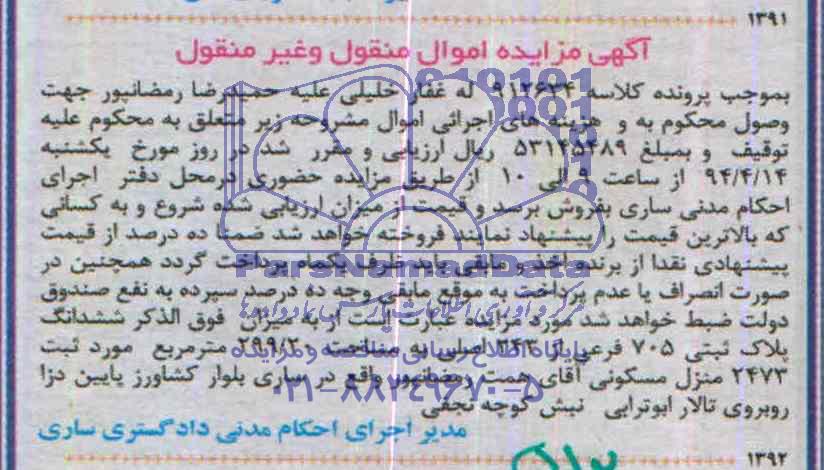 ۱۳۹۱
آگهی مزایده اموال منقول وغیر منقول
بموجب پرونده کلاسه ۹۱۲۶۳۴ له غفار خلیلی علیه حمیدرضا رمضانپور جهت
وصول محکوم به و هزینه های اجرائی اموال مشروحه زیر متعلق به محکوم علیه
توقیف و بمبلغ ریال ارزیابی و مقرر شد در روز مورخ یکشنبه
۹۴/۴/۱۴ از ساعت ۹ الی ۱۰ از طریق مزایده حضوری درمحل دفتر اجرای
احکام مدنی ساری بفروش برسد و قیمت از میزان ارزیابی شده شروع و به کسانی
که بالاترین قیمت را پیشنهاد نمایند فروخته خواهد شد ضمنا ده درصد از قیمت
پیشنهادی نقدا از برنده اخذ و مابقی باید ظرف یکماه پرداخت گردد همچنین در
صورت انصراف یا عدم پرداخت به موقع مابقی وجه ده درصد سپرده به نفع صندوق
دولت ضبط خواهد شد مورد مزایده عبارت است از به میزان فوق الذکر ششدانگ
پلاک ثبتی ۷۰۵ فرعی از ۳۴۳ اصلی به مساحت ۲۹۹/۲۰ مترمربع مورد ثبت
۲۴۷۳ منزل مسکونی آقای همت رمضانپور واقع در ساری بلوار کشاورز پایین دزا
روبروی تالار ابوترابی نبش کوچه نجفی
مدیر اجرای احکام مدنی دادگستری ساری
۱۳۹۲
ParsNamadData
پایگاه اطلاع رسانی مناقصه و مزایده
۰۲۱-۸۸۳۴۹۶۷۰-۵